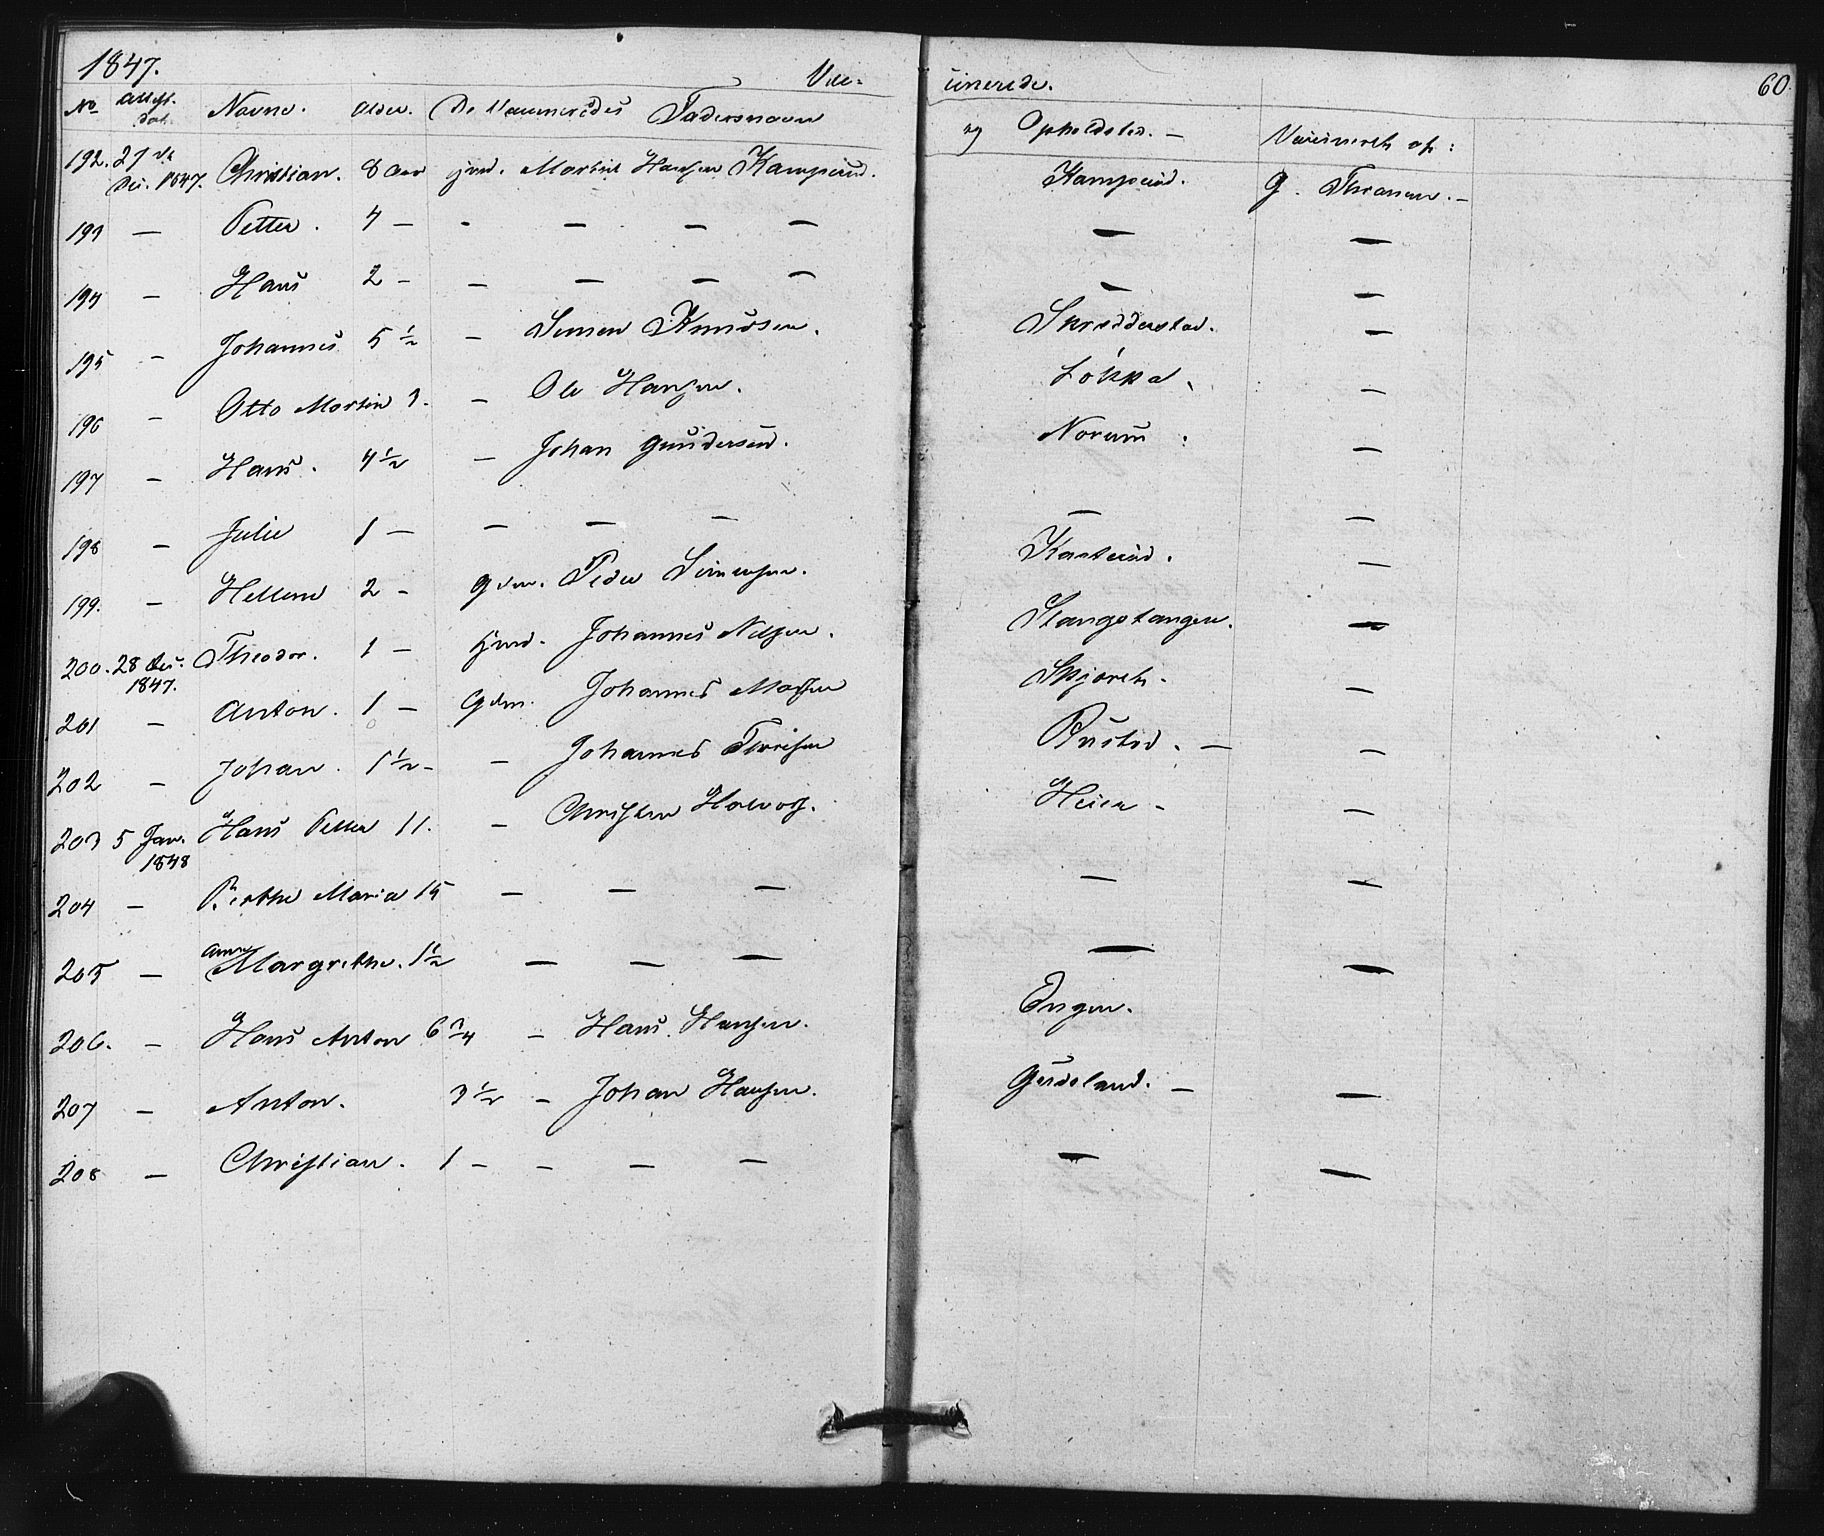 1847. Vac- cinerede. 60.
No Attest. Dat. Navne. Alder. De Vaccineredes Fadersnavn og Opholdsted. — Vaccineret af:
192. 27de Dec. 1847. Christian. 8 Aar hmd. Martin Hansen Kampeiud. Kampeiud. G. Thranem. —
193 — Petter. 4 — - — — — — —
194 — Hans 2 — — — — — — —
195 — Johannes 5 1/2 — Simen Knudsen. Skredderstad. —
196 — Otto Martin 3. — Ole Hansen. Løkka. —
197 — Hans. 4 1/2 — Johan Gundersen. Norum. —
198 — Julie 1 — — — — — —
199. — Hellene 2 — Gdm. Peder Simensen. Kasterud. —
200. 28 Dec. 1847. Theodor. 1 — hmd. Johannes Nilsen. Stangstangen. —
201 — Anton. 1 — Gdm. Johannes Madsen Skjoret. —
202 — Johan. 1 1/2 — — Johannes Torersen Rustad. — —
203 5 Jan. 1848 Hans Petter 11. — Christen Halvors. Heier — —
204 — Birthe Maria 15 — — — — —
205 — Anne Margrethe. 1 1/2 — — — — —
206. — Hans Anton 6 3/4 — Hans Hansen. Engen. —
207 — Anton. 3 1/2 — Johan Hansen. Gudsland. — —
208 — Christian. 1 — — — — — —